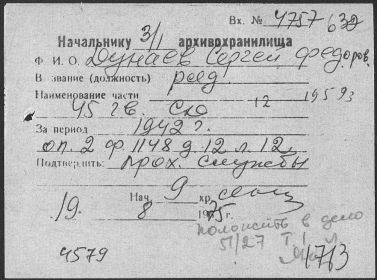 Вх. № 4757 632
Начальнику 3/1 архивохранилища
Ф. И. О. Дунаев Сергей Федоров.
В звание (должность) ряд
Наименование части 12 19593
45 гв. СКО
За период 1942 г.
оп. 2 ф. 1148 д. 12 л. 12
Подтвердить: прох. службы
Нач. 9 хр.
19. 8 1975 г.
положить в дело
51/27
4579 1713